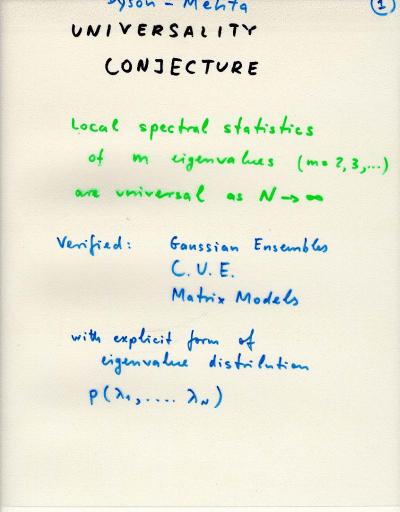 Dyson - Mehta (1)
UNIVERSALITY
CONJECTURE
Local spectral statistics
of m eigenvalues (m=2,3,...)
are universal as N→∞
Verified: Gaussian Ensembles
C.U.E.
Matrix Models
with explicit form of
eigenvalue distrilution
p(λ₁,.... λ_N)